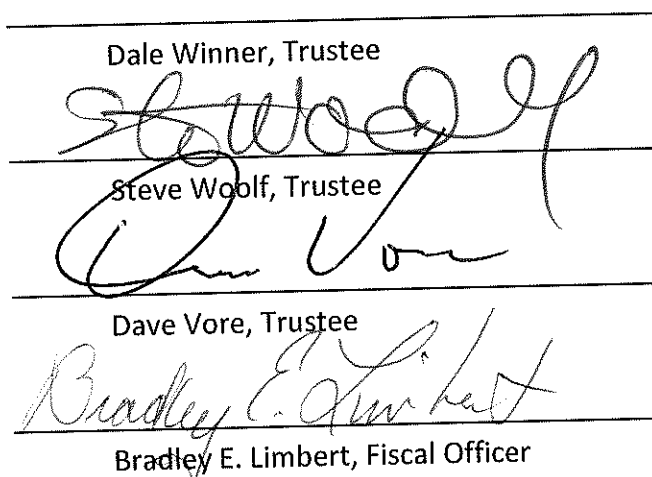 Dale Winner, Trustee
Steve Woolf
Steve Woolf, Trustee
Dave Vore
Dave Vore, Trustee
Bradley E. Limbert
Bradley E. Limbert, Fiscal Officer